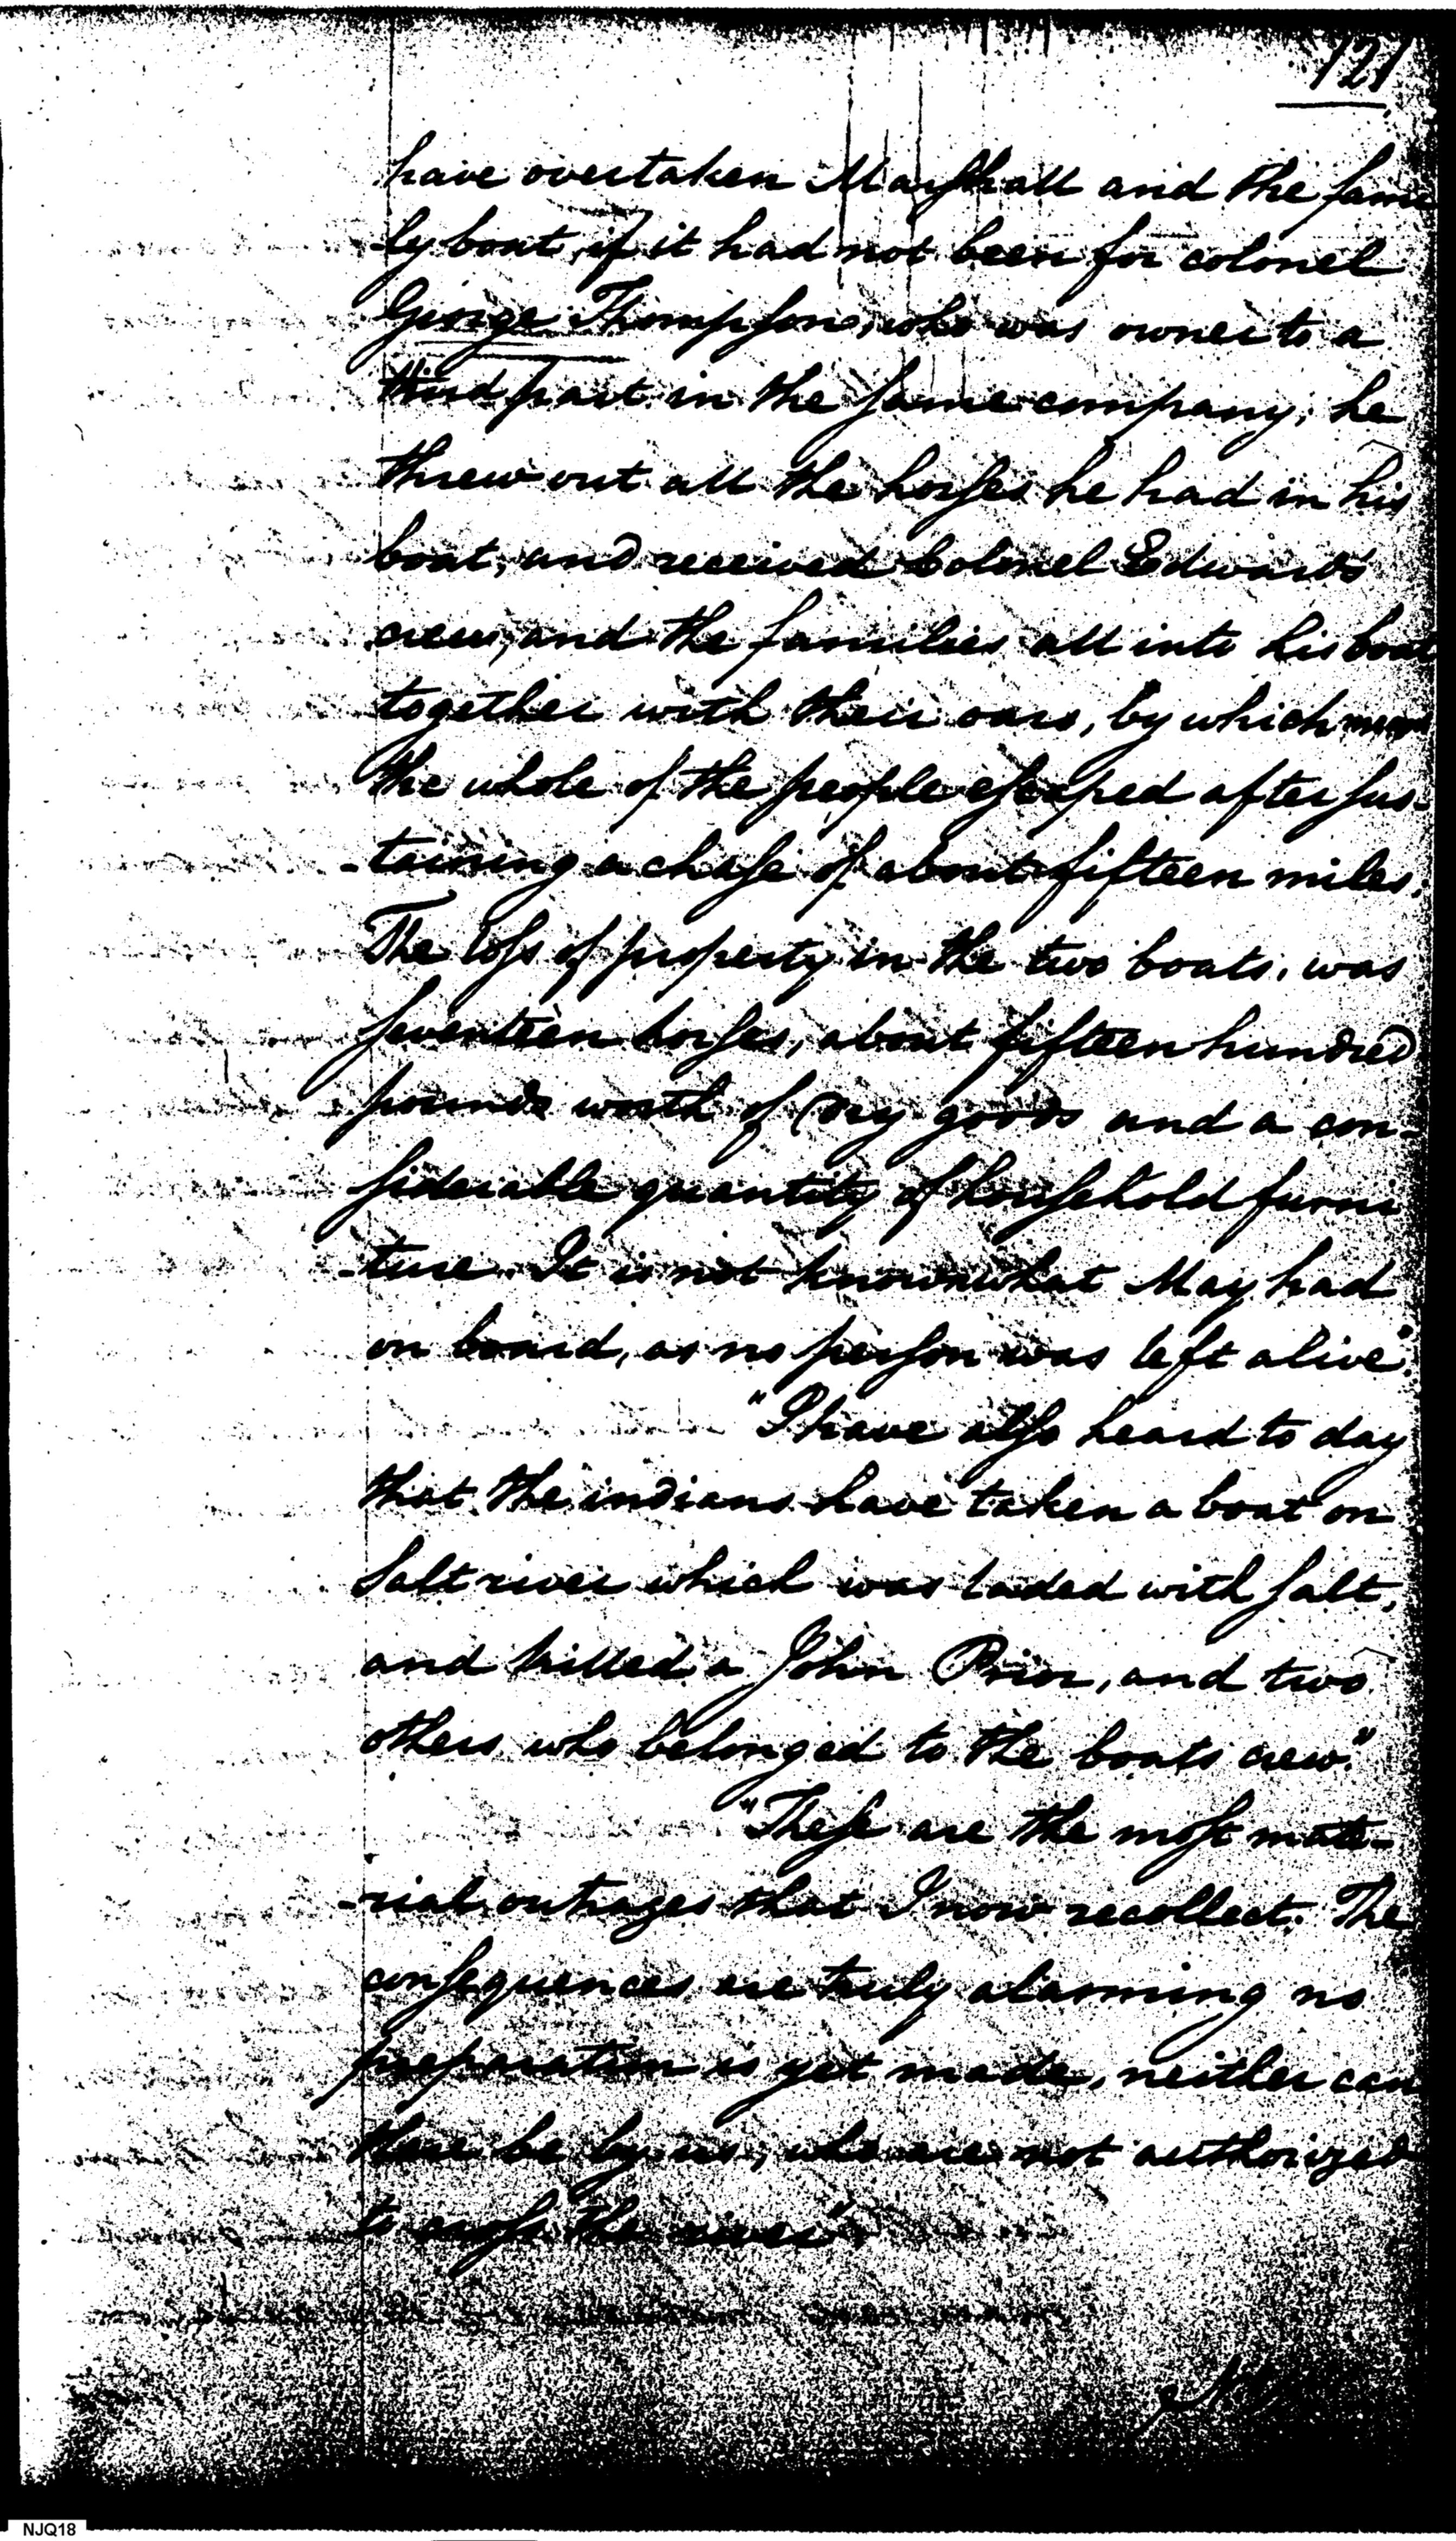 121
have overtaken Marshall and the fami
-ly boat, if it had not been for colonel
George Thompson, who was owner to a
third part in the same company; he
threw out all the horses he had in his
boat, and received Colonel Edwards
crew, and the families all into his boat
together with their oars, by which means
the whole of the people escaped after sus-
-taining a chase of about fifteen miles.
The loss of property in the two boats, was
seventeen horses, about fifteen hundred
pounds worth of dry goods and a con-
siderable quantity of household furni
-ture. It is not known what May had
on board, as no person was left alive".
"I have also heard to day
that the indians have taken a boat on
Salt river which was laded with salt,
and killed a John Prior, and two
others who belonged to the boats crew."
"These are the most mate-
-rial outrages that I now recollect. The
consequences are truly alarming no
preparation is yet made, neither can
there be by us, who are not authorized
to cross the river"
NJQ18